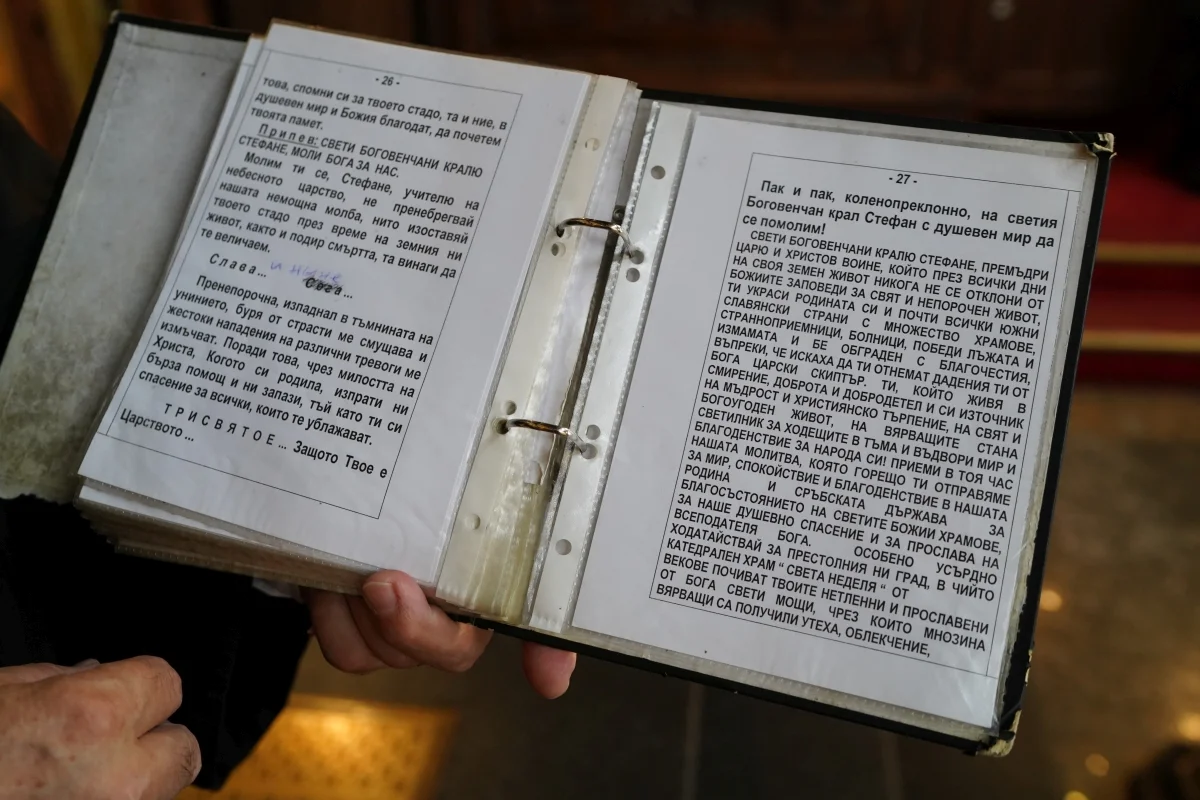 - 26 -
това, спомни си за твоето стадо, та и ние, в
душевен мир и Божия благодат, да почетем
твоята памет.
Припев: СВЕТИ БОГОВЕНЧАНИ КРАЛЮ
СТЕФАНЕ, МОЛИ БОГА ЗА НАС.
Молим ти се, Стефане, учителю на
небесното царство, не пренебрегвай
нашата немощна молба, нито изоставяй
твоето стадо през време на земния ни
живот, както и подир смъртта, та винаги да
те величаем.
Слава... и ныне
Сега...
Пренепорочна, изпаднал в тъмнината на
унинието, буря от страсти ме смущава и
жестоки нападения на различни тревоги ме
измъчват. Поради това, чрез милостта на
Христа, Когото си родила, изпрати ни
бърза помощ и ни запази, тъй като ти си
спасение за всички, които те ублажават.
ТРИСВЯТОЕ... Защото Твое е
Царството ...
- 27 -
Пак и пак, коленопреклонно, на светия
Боговенчан крал Стефан с душевен мир да
се помолим!
СВЕТИ БОГОВЕНЧАНИ КРАЛЮ СТЕФАНЕ, ПРЕМЪДРИ
ЦАРЮ И ХРИСТОВ ВОИНЕ, КОЙТО ПРЕЗ ВСИЧКИ ДНИ
НА СВОЯ ЗЕМЕН ЖИВОТ НИКОГА НЕ СЕ ОТКЛОНИ ОТ
БОЖИИТЕ ЗАПОВЕДИ ЗА СВЯТ И НЕПОРОЧЕН ЖИВОТ,
ТИ УКРАСИ РОДИНАТА СИ И ПОЧТИ ВСИЧКИ ЮЖНИ
СЛАВЯНСКИ СТРАНИ С МНОЖЕСТВО ХРАМОВЕ,
СТРАННОПРИЕМНИЦИ, БОЛНИЦИ, ПОБЕДИ ЛЪЖАТА И
ИЗМАМАТА И БЕ ОБГРАДЕН С БЛАГОЧЕСТИЯ,
ВЪПРЕКИ, ЧЕ ИСКАХА ДА ТИ ОТНЕМАТ ДАДЕНИЯ ТИ ОТ
БОГА ЦАРСКИ СКИПТЪР. ТИ, КОЙТО ЖИВЯ В
СМИРЕНИЕ, ДОБРОТА И ДОБРОДЕТЕЛ И СИ ИЗТОЧНИК
НА МЪДРОСТ И ХРИСТИЯНСКО ТЪРПЕНИЕ, НА СВЯТ И
БОГОУГОДЕН ЖИВОТ, НА ВЯРВАЩИТЕ СТАНА
СВЕТИЛНИК ЗА ХОДЕЩИТЕ В ТЪМА И ВЪДВОРИ МИР И
БЛАГОДЕНСТВИЕ ЗА НАРОДА СИ! ПРИЕМИ В ТОЯ ЧАС
НАШАТА МОЛИТВА, КОЯТО ГОРЕЩО ТИ ОТПРАВЯМЕ
ЗА МИР, СПОКОЙСТВИЕ И БЛАГОДЕНСТВИЕ В НАШАТА
РОДИНА И СРЪБСКАТА ДЪРЖАВА ЗА
БЛАГОСЪСТОЯНИЕТО НА СВЕТИТЕ БОЖИИ ХРАМОВЕ,
ЗА НАШЕ ДУШЕВНО СПАСЕНИЕ И ЗА ПРОСЛАВА НА
ВСЕПОДАТЕЛЯ БОГА. ОСОБЕНО УСЪРДНО
ХОДАТАЙСТВАЙ ЗА ПРЕСТОЛНИЯ НИ ГРАД, В ЧИЙТО
КАТЕДРАЛЕН ХРАМ “ СВЕТА НЕДЕЛЯ “ ОТ
ВЕКОВЕ ПОЧИВАТ ТВОИТЕ НЕТЛЕННИ И ПРОСЛАВЕНИ
ОТ БОГА СВЕТИ МОЩИ, ЧРЕЗ КОИТО МНОЗИНА
ВЯРВАЩИ СА ПОЛУЧИЛИ УТЕХА, ОБЛЕКЧЕНИЕ,